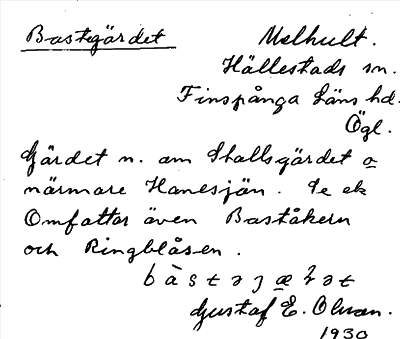 Bastegärdet Melhult.
Hällestads sn.
Finspånga Läns hd.
Ögl.
Gärdet n. om Stallsgärdet o
närmare Hanesjön. Se ek
Omfattar även Baståkern
och Ringblåsen.
Gustaf E. Olsson.
1930